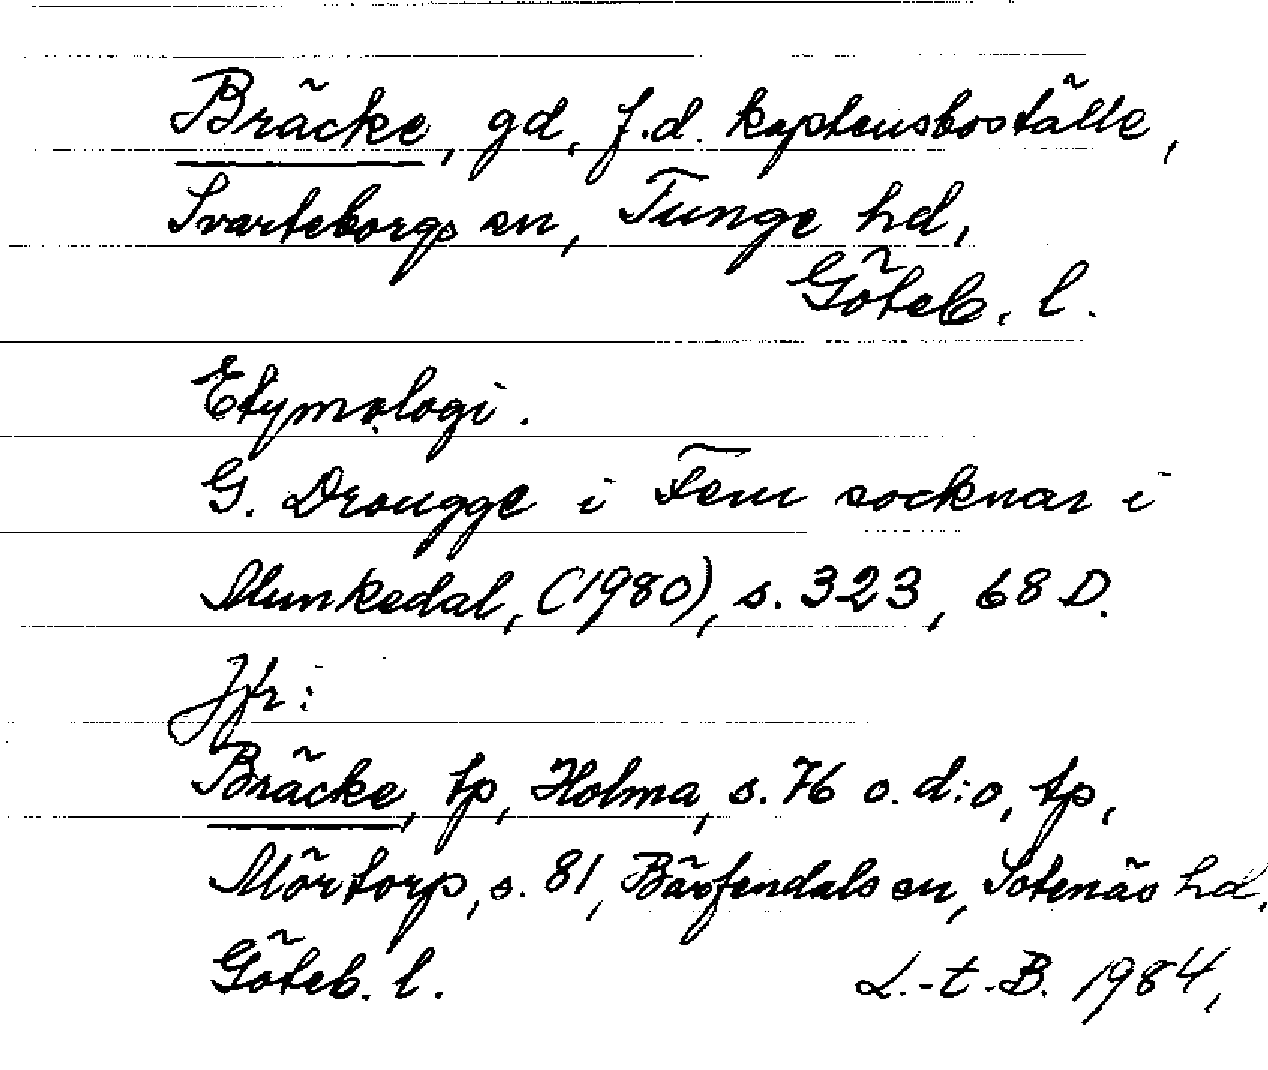 Bräcke, gd, f.d. kaptensboställe,
Svarteborgs sn, Tunge hd,
Göteb. l.
Etymologi.
G. Drougge i Fem socknar i
Munkedal, (1980), s. 323, 68 D.
Jfr:
Bräcke, tp, Holma, s. 76 o. d:o, tp,
Mörtorp, s. 81, Bärfendals sn, Sotenäs hd,
Göteb. l.
L.-t.-B. 1984,